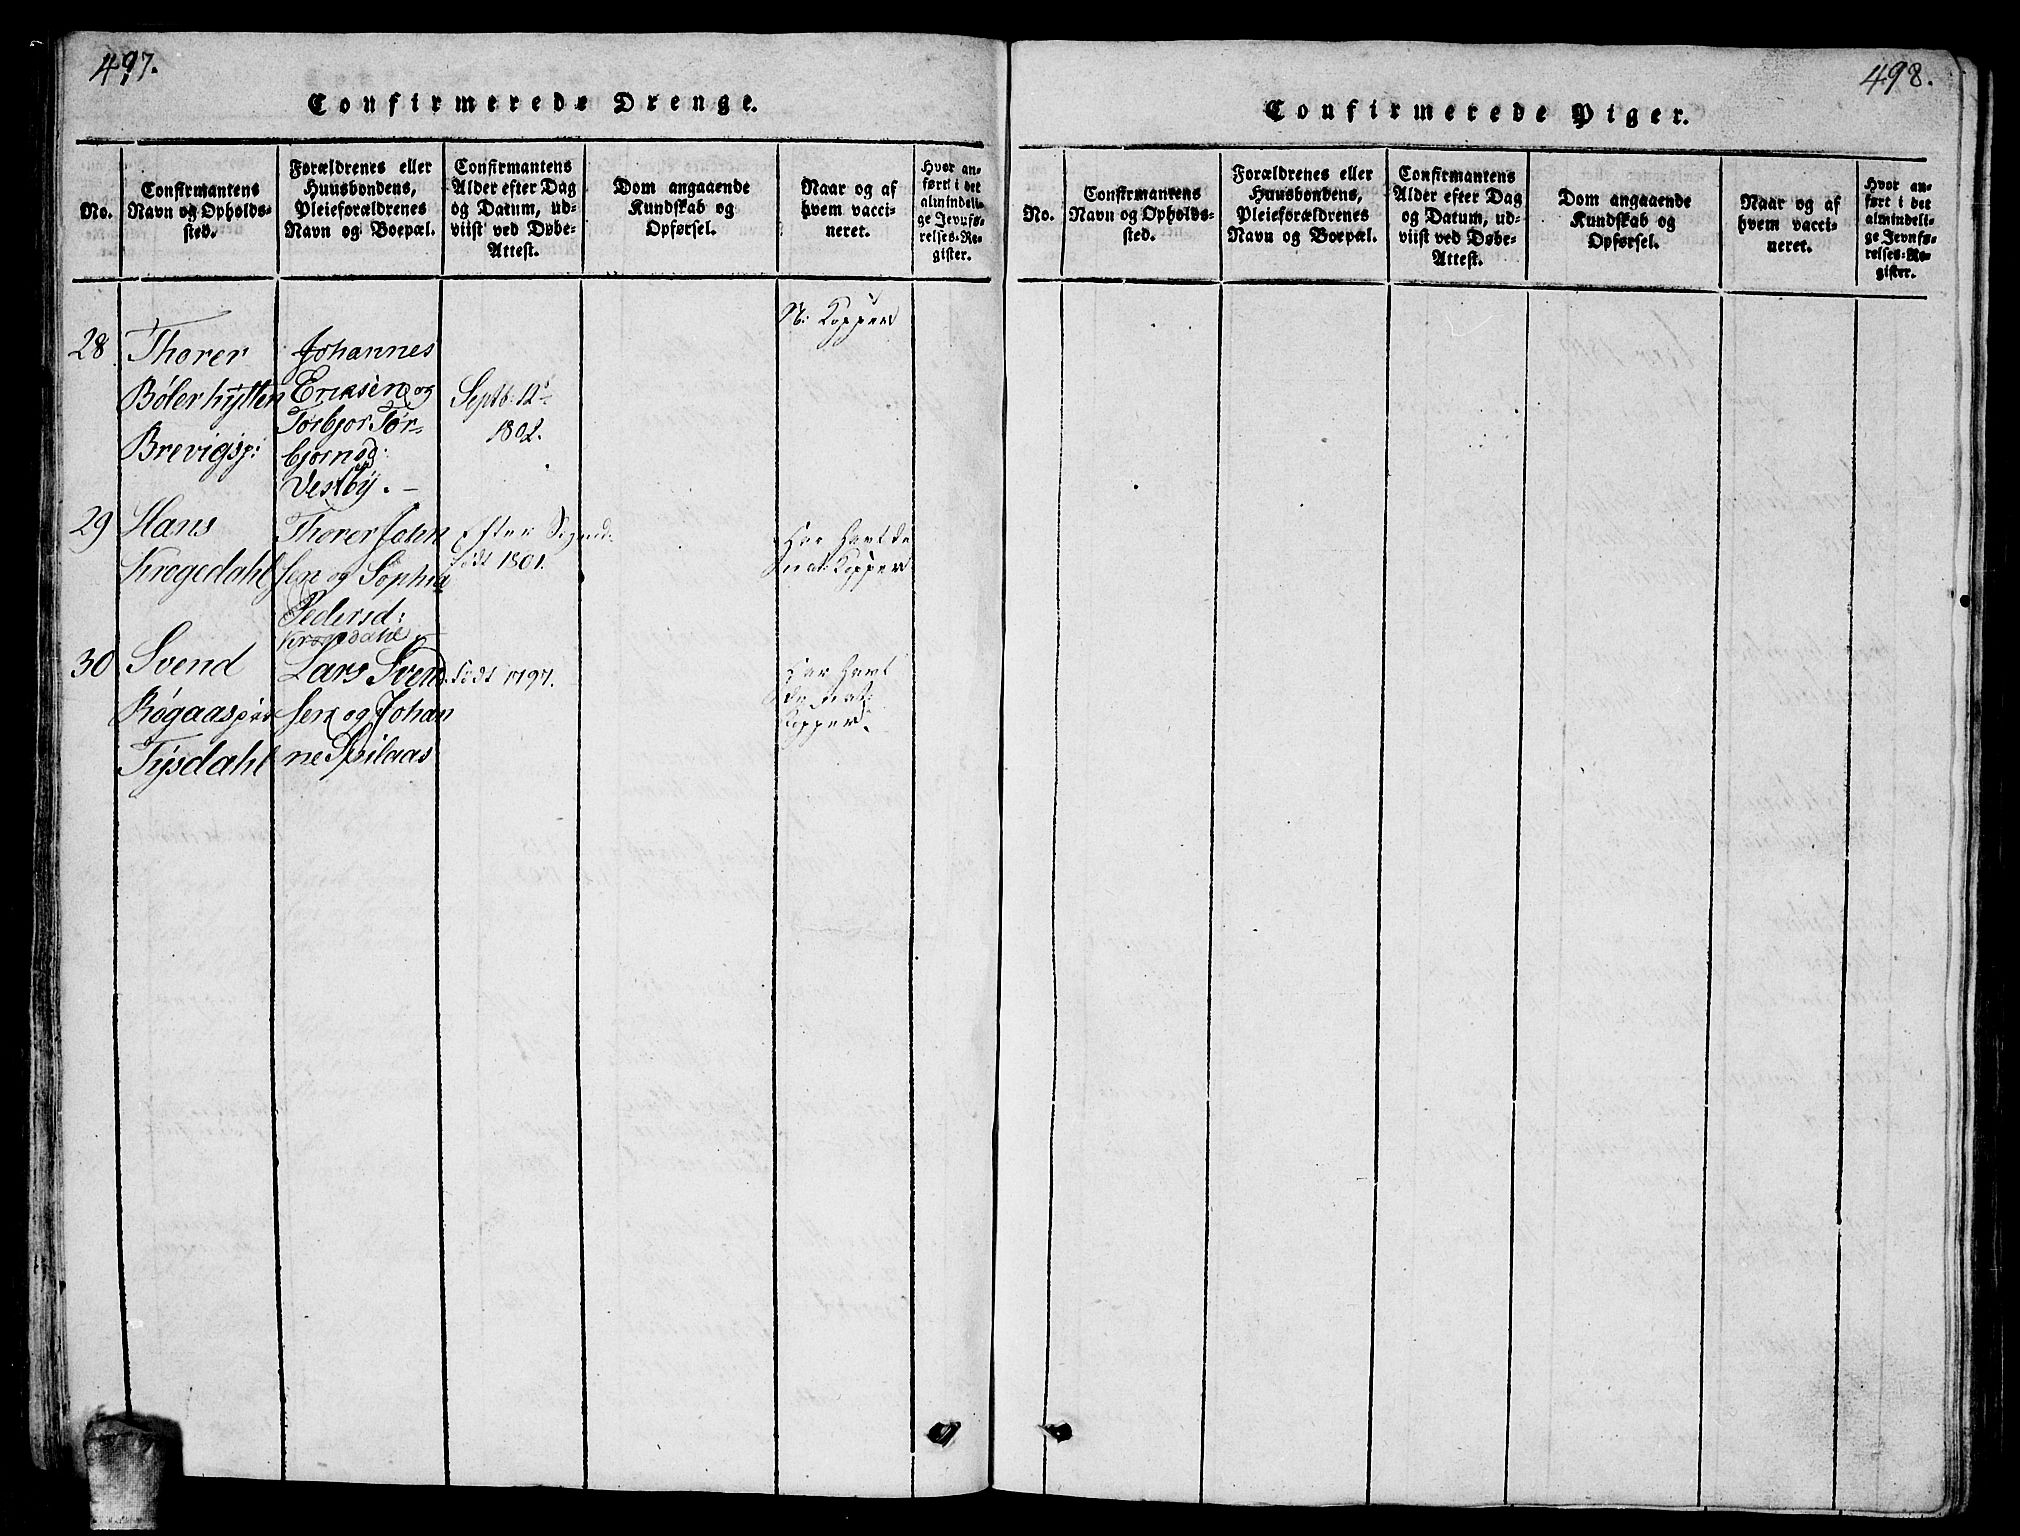 497.
Confirmerede Drenge.
No.
Confirmantens
Navn og Opholds-
sted.
Forældrenes eller
Huusbondens,
Pleieforældrenes
Navn og Boepæl.
Confirmantens
Alder efter Dag
og Datum, ud-
viist ved Døbe-
Attest.
Dom angaaende
Kundskab og
Opførsel.
Naar og af
hvem vacci-
neret.
Hvor an-
ført i det
almindeli-
ge Jevnfø-
relses-Re-
gister.
28
Thorer
Bølerhytten
Brevigsp:
Johannes
Ericsen og
Torbjor Tor-
bjørnsd:
Vestby. —
Septb: 12
1802.
N: Kopper
29
Hans
Krogedahl
Thorer John
sen og Sophia
Pedersd:
Krogedahl
Efter Sigend:
født 1801.
Har havt de
nat: Kopper
30
Svend
Røgaaspet
Tysdahl
Lars Svend
sen og Johan
ne
født 1797.
Har havt
de nat:
Kopper.
498.
Confirmerede Piger.
No.
Confirmantens
Navn og Opholds-
sted.
Forældrenes eller
Huusbondens,
Pleieforældrenes
Navn og Boepæl.
Confirmantens
Alder efter Dag
og Datum, ud-
viist ved Døbe-
Attest.
Dom angaaende
Kundskab og
Opførsel.
Naar og af
hvem vacci-
neret.
Hvor an-
ført i det
almindeli-
ge Jevnfø-
relses-Re-
gister.